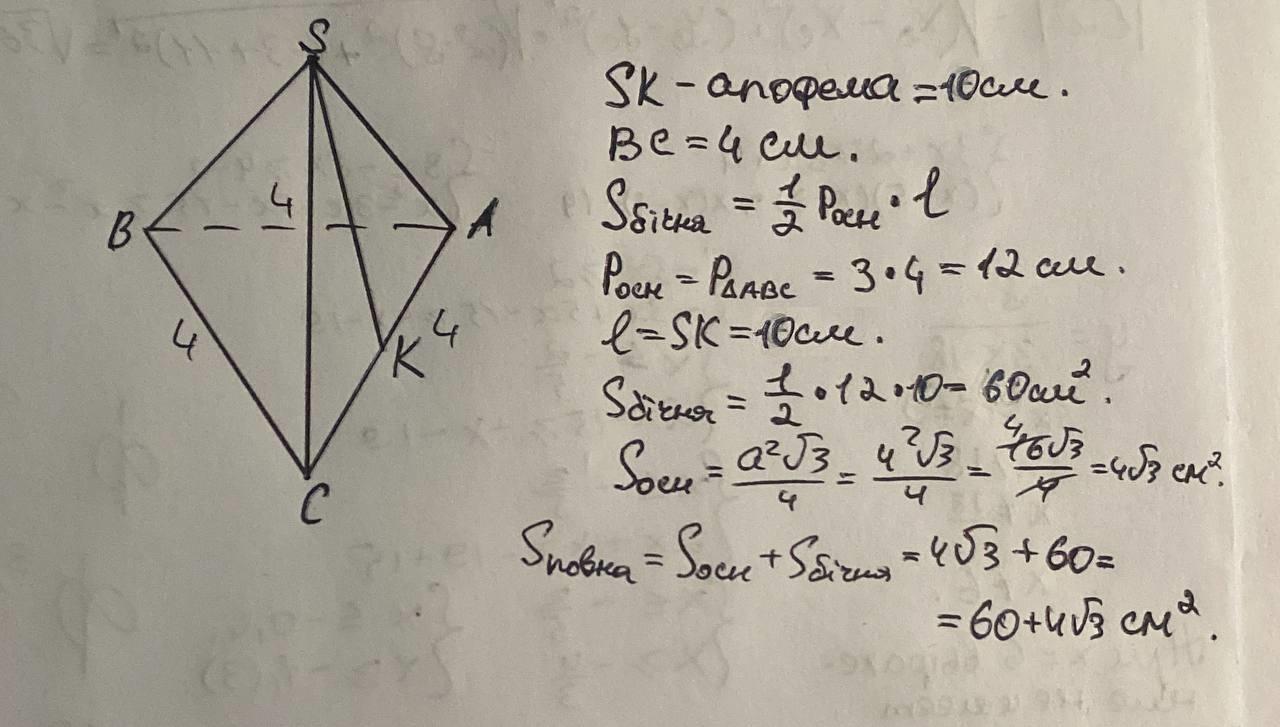 S
B
4
A
4
K
4
C
SK - апофема = 10 см.
BC = 4 см.
Sбічна = 1/2 Pосн · l
Pосн = P△ABC = 3 · 4 = 12 см.
l = SK = 10 см.
Sбічна = 1/2 · 12 · 10 = 60 см².
Sосн = a²√3/4 = 4²√3/4 = 16√3/4 = 4√3 см².
Sповна = Sосн + Sбічна = 4√3 + 60 =
= 60 + 4√3 см².